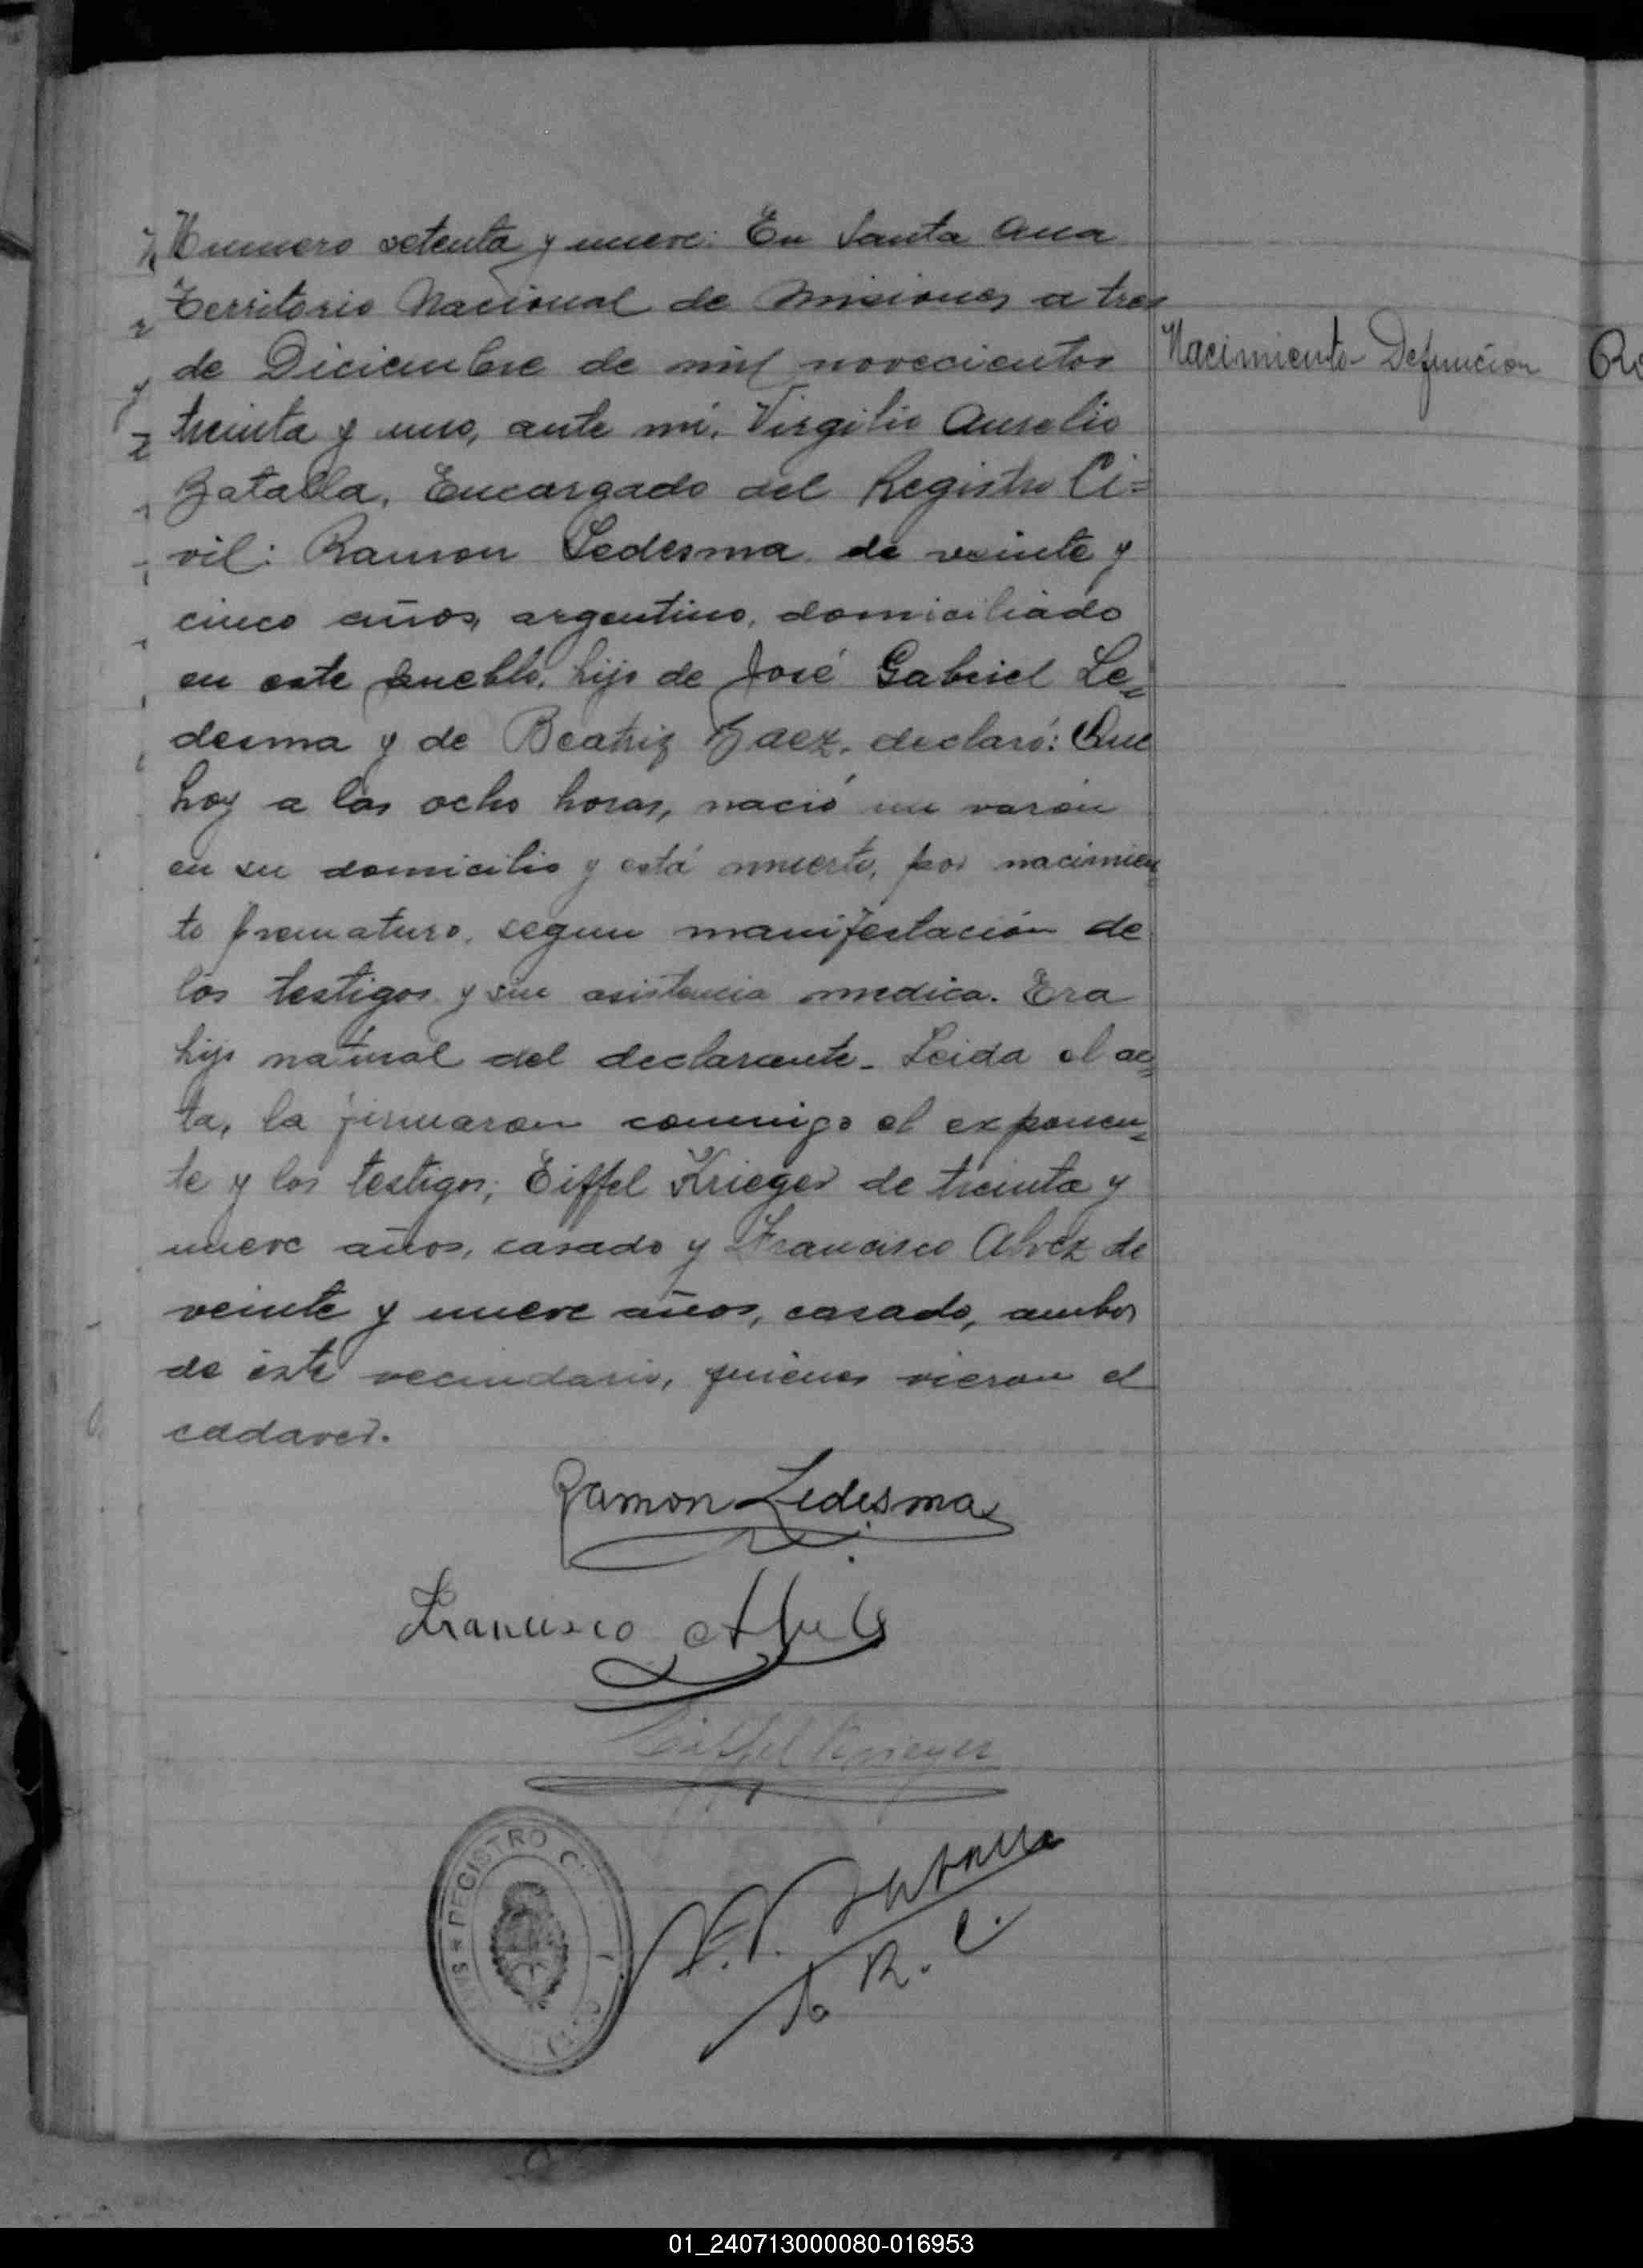 Numero setenta y nueve: En Santa Ana
Territorio Nacional de Misiones a tres
de Diciembre de mil novecientos
treinta y uno, ante mi, Virgilio Aurelio
Batalla, Encargado del Registro Ci=
vil: Ramon Ledesma de veinte y
cinco años, argentino, domiciliado
en este pueblo, hijo de José Gabriel Le=
desma y de Beatriz Baez, declaró: Que
hoy a las ocho horas, nació un varón
en su domicilio y está muerto, por nacimien
to prematuro, segun manifestación de
los testigos y sin asistencia medica. Era
hijo natural del declarante. Leida el ac=
ta, la firmaron conmigo el exponen=
te y los testigos; Eiffel Krieger de treinta y
nueve años, casado y Francisco Alvez de
veinte y nueve años, casado, ambos
de éste vecindario, quienes vieron el
cadaver.
Nacimiento-Defunción
Ramon Ledesma
Francisco
Eiffel Krieger
REGISTRO
Batalla
R. C.
01_240713000080-016953